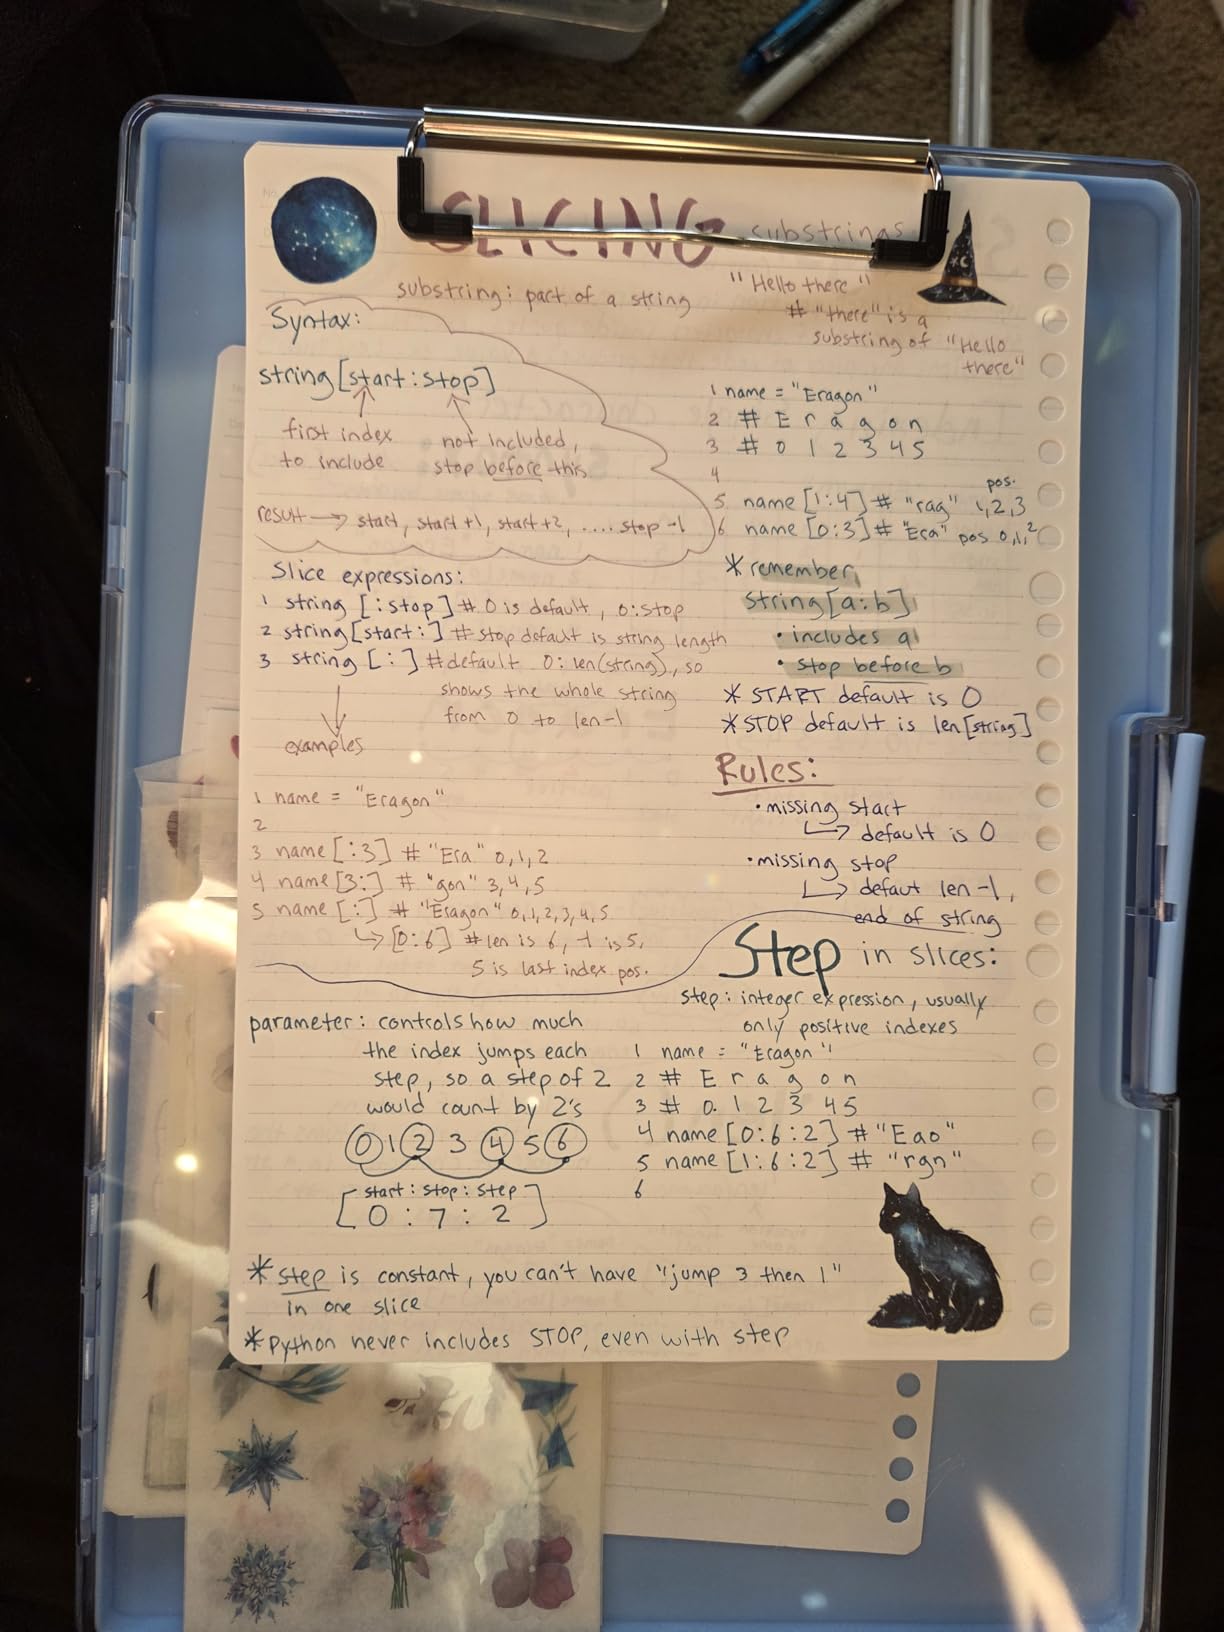 SLICING substrings
substring: part of a string
"Hello there"
# "there" is a
substring of "Hello
there"
Syntax:
string[start:stop]
first index
to include
not included,
stop before this
result → start, start+1, start+2, .... stop -1
1 name = "Eragon"
2 # E r a g o n
3 # 0 1 2 3 4 5
4
5 name [1:4] # "rag" pos. 1,2,3
6 name [0:3] # "Era" pos 0,1,2
* remember,
string[a:b]
• includes a
• stop before b
* START default is 0
* STOP default is len[string]
Slice expressions:
1 string [:stop] # 0 is default, 0:stop
2 string[start:] # stop default is string length
3 string [:] # default 0: len(string), so
shows the whole string
from 0 to len-1
examples
1 name = "Eragon"
2
3 name[:3] # "Era" 0,1,2
4 name[3:] # "gon" 3,4,5
5 name[:] # "Eragon" 0,1,2,3,4,5
↳ [0:6] # len is 6, -1 is 5,
5 is last index pos.
Rules:
• missing start
↳ default is 0
• missing stop
↳ defaut len -1,
end of string
Step in slices:
step: integer expression, usually
only positive indexes
parameter: controls how much
the index jumps each
step, so a step of 2
would count by 2's
0 1 2 3 4 5 6
start: stop: step
[0 : 7 : 2]
1 name = "Eragon"
2 # E r a g o n
3 # 0 1 2 3 4 5
4 name [0:6:2] # "Eao"
5 name [1:6:2] # "rgn"
6
* step is constant, you can't have "jump 3 then 1"
in one slice
* Python never includes STOP, even with step